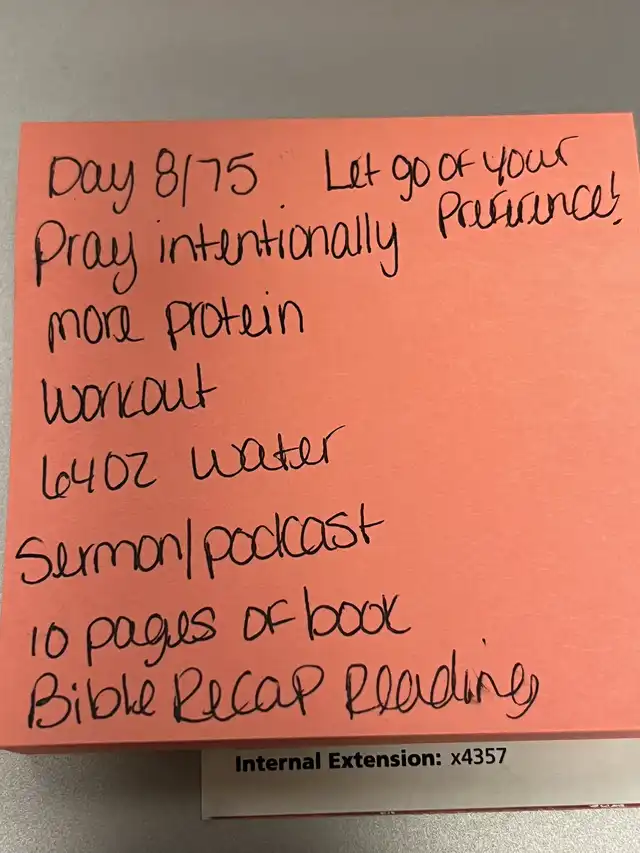 Day 8/75 Let go of your
Preference!
Pray intentionally
more protein
workout
64oz water
Sermon/podcast
10 pages of book
Bible Recap Reading
Internal Extension: x4357